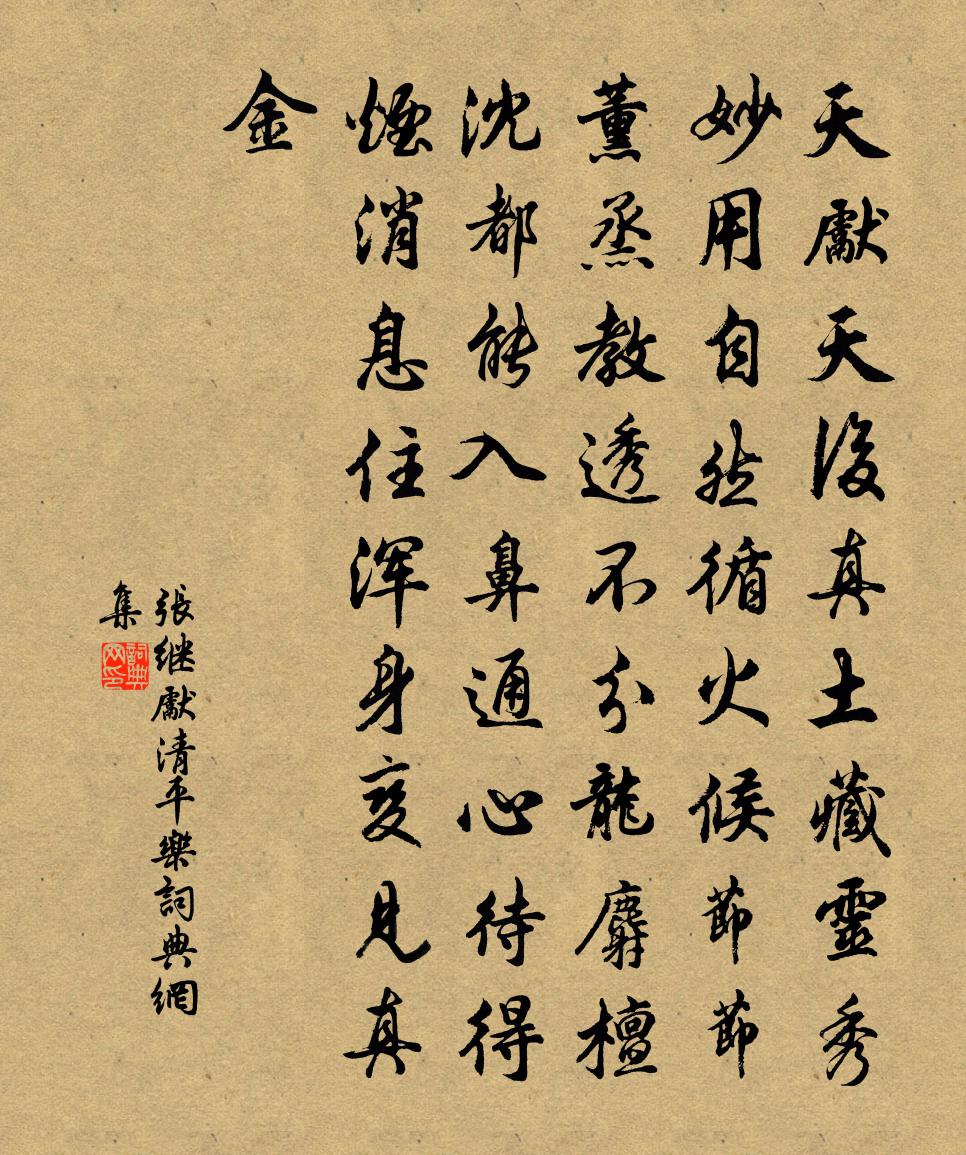 天獻天後真土藏靈秀
妙用自然循火候節節
薰烝教透不分龍麝檀
沈都能入鼻通心待得
煙消息住渾身變見真
金
張继獻清平樂詞典網
集
詞典
网印